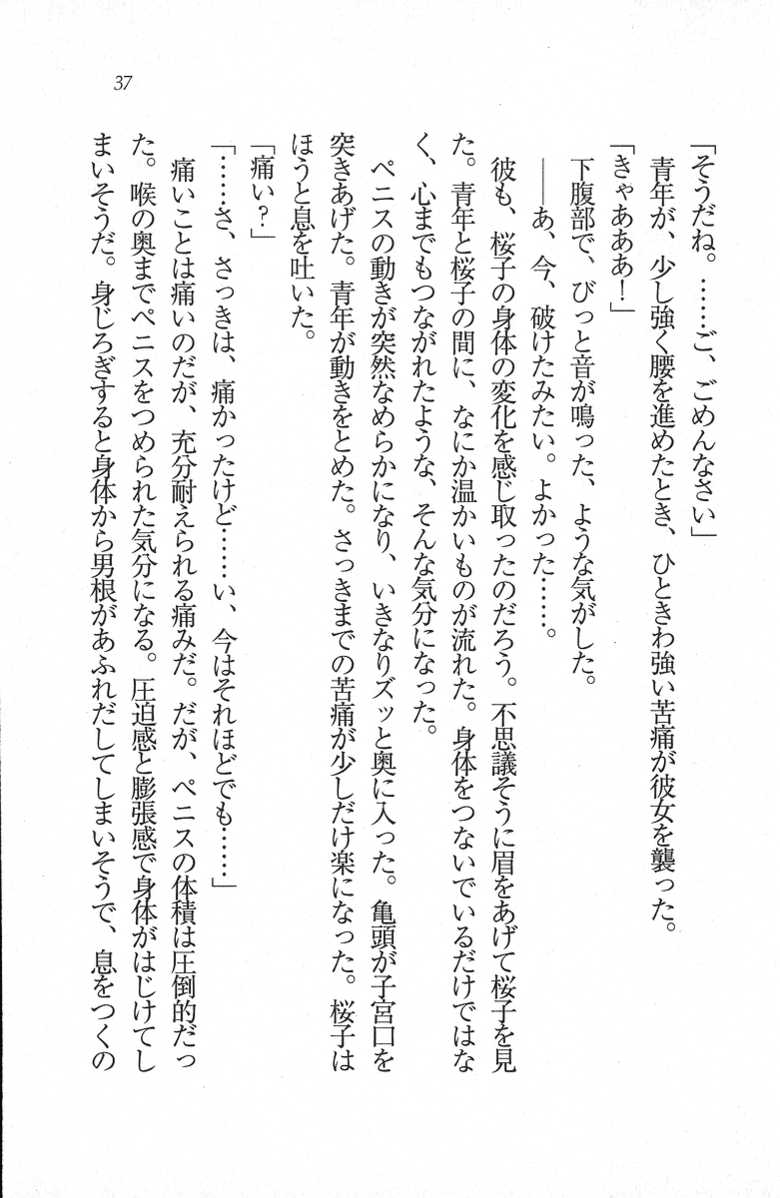 37
「そうだね。……ご、ごめんなさい」
青年が、少し強く腰を進めたとき、ひときわ強い苦痛が彼女を襲った。
「きゃあああ！」
下腹部で、びっと音が鳴った、ような気がした。
――あ、今、破けたみたい。よかった……。
彼も、桜子の身体の変化を感じ取ったのだろう。不思議そうに眉をあげて桜子を見
た。青年と桜子の間に、なにか温かいものが流れた。身体をつないでいるだけではな
く、心までもつながれたような、そんな気分になった。
ペニスの動きが突然なめらかになり、いきなりズッと奥に入った。亀頭が子宮口を
突きあげた。青年が動きをとめた。さっきまでの苦痛が少しだけ楽になった。桜子は
ほうと息を吐いた。
「痛い？」
「……さ、さっきは、痛かったけど……い、今はそれほどでも……」
痛いことは痛いのだが、充分耐えられる痛みだ。だが、ペニスの体積は圧倒的だっ
た。喉の奥までペニスをつめられた気分になる。圧迫感と膨張感で身体がはじけてし
まいそうだ。身じろぎすると身体から男根があふれだしてしまいそうで、息をつくの